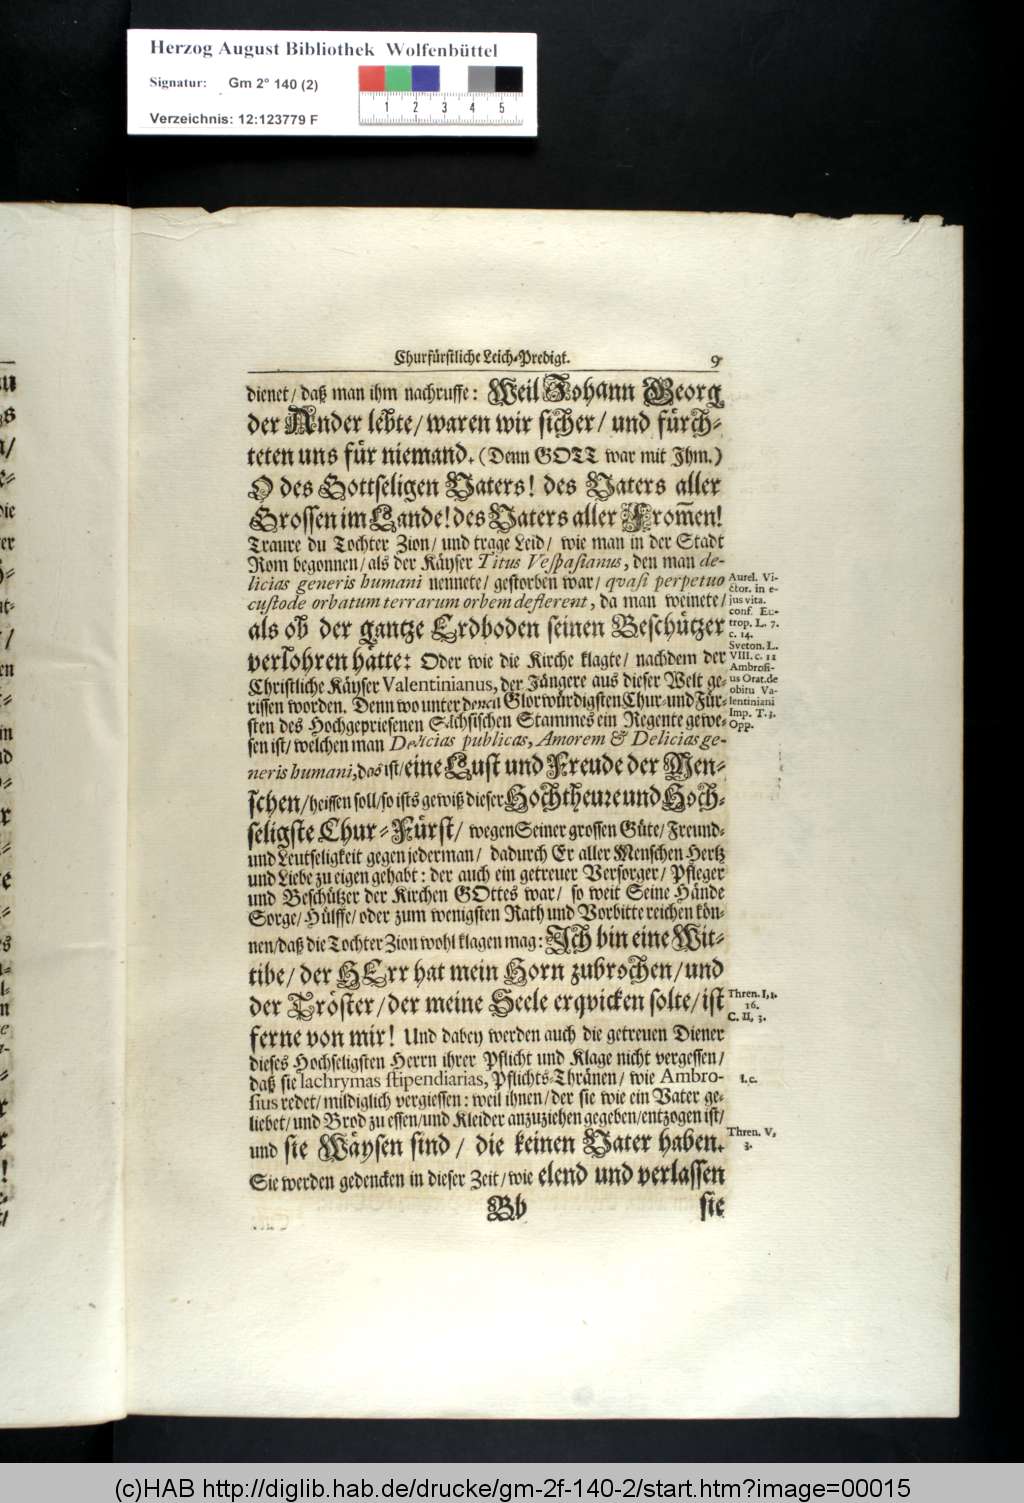 Herzog August Bibliothek Wolfenbüttel
Signatur: Gm 2° 140 (2)
1 2 3 4 5
Verzeichnis: 12:123779 F
Churfürstliche Leich-Predigt. 9
dienet/ daß man ihm nachruffe: Weil Johann Georg
der Ander lebte/ waren wir sicher/ und fürch-
teten uns für niemand. (Denn GOTT war mit Ihm.)
O des Gottseligen Vaters! des Vaters aller
Grossen im Lande! des Vaters aller From̄en!
Traure du Tochter Zion/ und trage Leid/ wie man in der Stadt
Rom begonnen/ als der Käyser Titus Vespasianus, den man de-
licias generis humani nennete/ gestorben war/ qvasi perpetuo
custode orbatum terrarum orbem deflerent, da man weinete/
als ob der gantze Erdboden seinen Beschützer
verlohren hätte: Oder wie die Kirche klagte/ nachdem der
Christliche Käyser Valentinianus, der Jüngere aus dieser Welt ge-
rissen worden. Denn wo unter denen Glorwürdigsten Chur- und Für-
sten des Hochgepriesenen Sächsischen Stammes ein Regente gewe-
sen ist/ welchen man Delicias publicas, Amorem & Delicias ge-
neris humani, das ist/ eine Lust und Freude der Men-
schen/ heissen soll/ so ists gewiß dieser Hochtheure und Hoch-
seligste Chur-Fürst/ wegen Seiner grossen Güte/ Freund-
und Leutseligkeit gegen jederman/ dadurch Er aller Menschen Hertz
und Liebe zu eigen gehabt: der auch ein getreuer Versorger/ Pfleger
und Beschützer der Kirchen GOttes war/ so weit Seine Hände
Sorge/ Hülffe/ oder zum wenigsten Rath und Vorbitte reichen kön-
nen/ daß die Tochter Zion wohl klagen mag: Ich bin eine Wit-
tibe/ der HErr hat mein Horn zubrochen/ und
der Tröster/ der meine Seele erqvicken solte/ ist
ferne von mir! Und dabey werden auch die getreuen Diener
dieses Hochseligsten Herrn ihrer Pflicht und Klage nicht vergessen/
daß sie lachrymas stipendiarias, Pflichts-Thränen/ wie Ambro-
sius redet/ mildiglich vergiessen: weil ihnen/ der sie wie ein Vater ge-
liebet/ und Brod zu essen/ und Kleider anzuziehen gegeben/ entzogen ist/
und sie Wäysen sind/ die keinen Vater haben.
Sie werden gedencken in dieser Zeit/ wie elend und verlassen
Bb sie
Aurel. Vi-
ctor. in e-
jus vita.
conf. Eu-
trop. L. 7.
c. 14.
Sveton. L.
VIII. c. 11
Ambrosi-
us Orat. de
obitu Va-
lentiniani
Imp. T. 3.
Opp.
Thren. I, 1.
16.
C. II, 3.
l. c.
Thren. V,
3.
(c)HAB http://diglib.hab.de/drucke/gm-2f-140-2/start.htm?image=00015